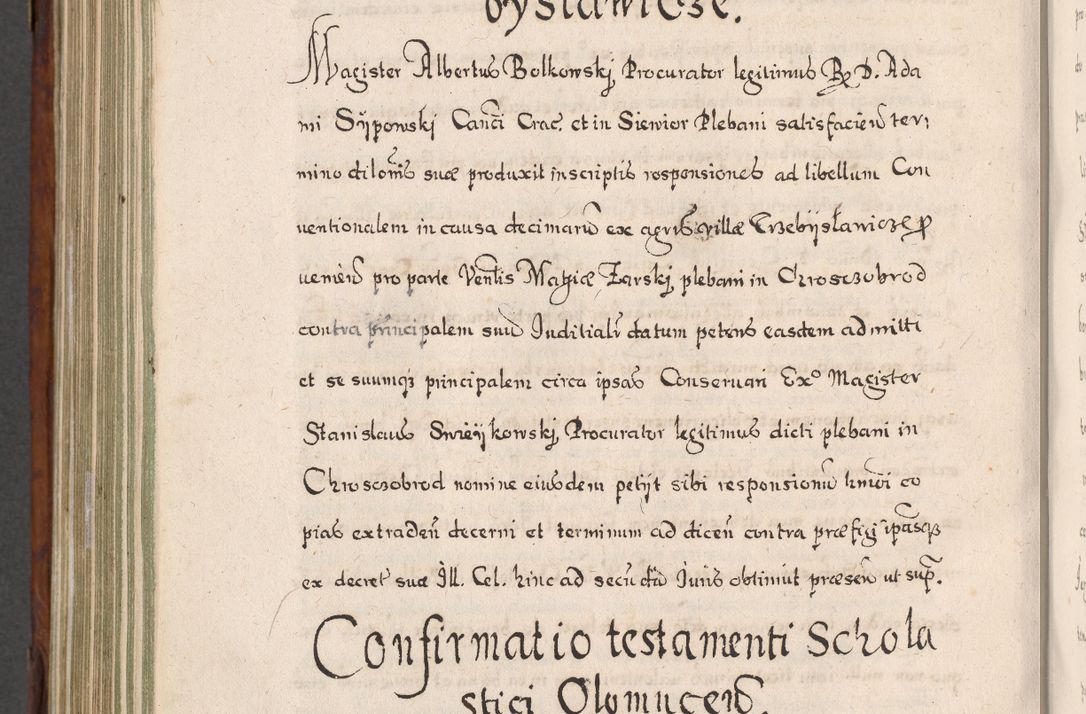 bysławicze.
Magister Albertus Bolkowskj Procurator legitimus R. D. Ada
mi Sypowskj Canci Crac. et in Siewior Plebani satisfacień ter:
mino dilonis suæ produxit inscriptis responsiones ad libellum Con
uentionalem in causa decimarū ex agris villæ Trzebysławicze p
ueniēn pro parte Ventis Mathiæ Żarskj plebani in Chrosczobrod
contra principalem suū Juditialr datum petens easdem admitti
et se suumq3 principalem circa ipsas Conseruari Exo Magister
Stanislaus Swięykowskj Procurator legitimus dicti plebani in
Chrosczobrod nomine eiusdem petijt sibi responsionū hmōi co
pias extradeń decerni et terminum ad diceń contra præfigi ipasq3
ex decret suæ Ill. Cel. hinc ad secūdū Juris obtinuit præseń ut sup.
Confirmatio testamenti Schola
stici Olomuceń.